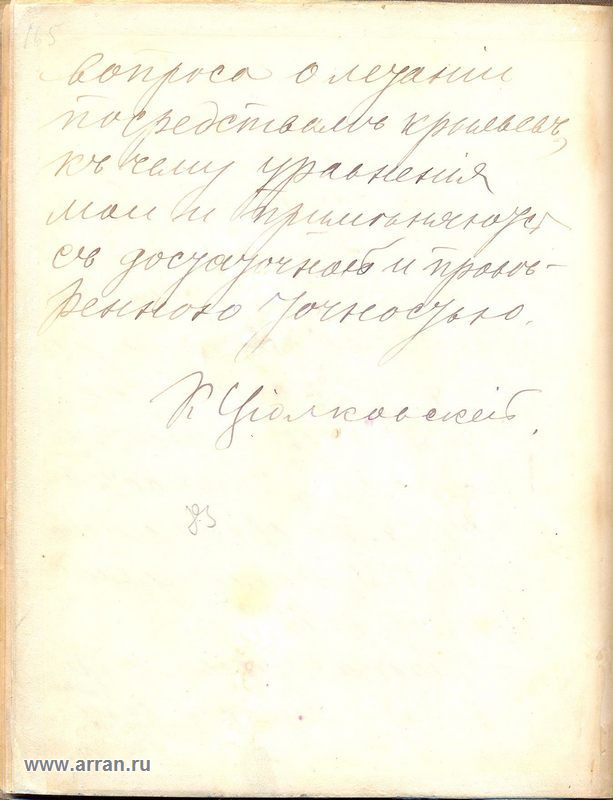 165
вопроса о летаніи
посредствомъ крыльевъ,
къ чему уравненія
мои и примѣняются
съ достаточной и провѣ-
ренною точностью.
К Ціолковскій.
83
www.arran.ru